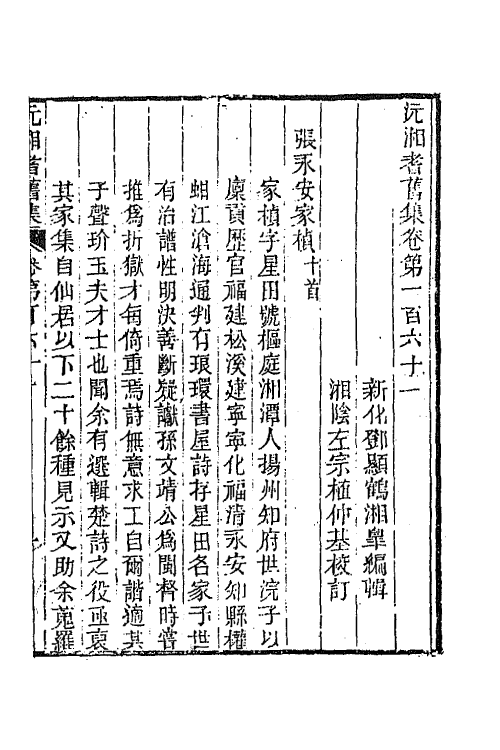 沅湘耆舊集卷第一百六十一
新化鄧顯鶴湘皐編輯
湘陰左宗植仲基校訂
張永安家楨十首
家楨字星田號樞庭湘潭人揚州知府世浣子以
廩貢歷官福建松溪建寧寧化福清永安知縣權
蚶江滄海通判有琅環書屋詩存星田名家子世
有治譜性明決善斷疑讞孫文靖公為閩督時嘗
推為折獄才每倚重焉詩無意求工自爾諧適其
子聲玠玉夫才士也聞余有選輯楚詩之役亟裒
其家集自仙居以下二十餘種見示又助余蒐羅
沅湘耆舊集 卷第百六十一 一